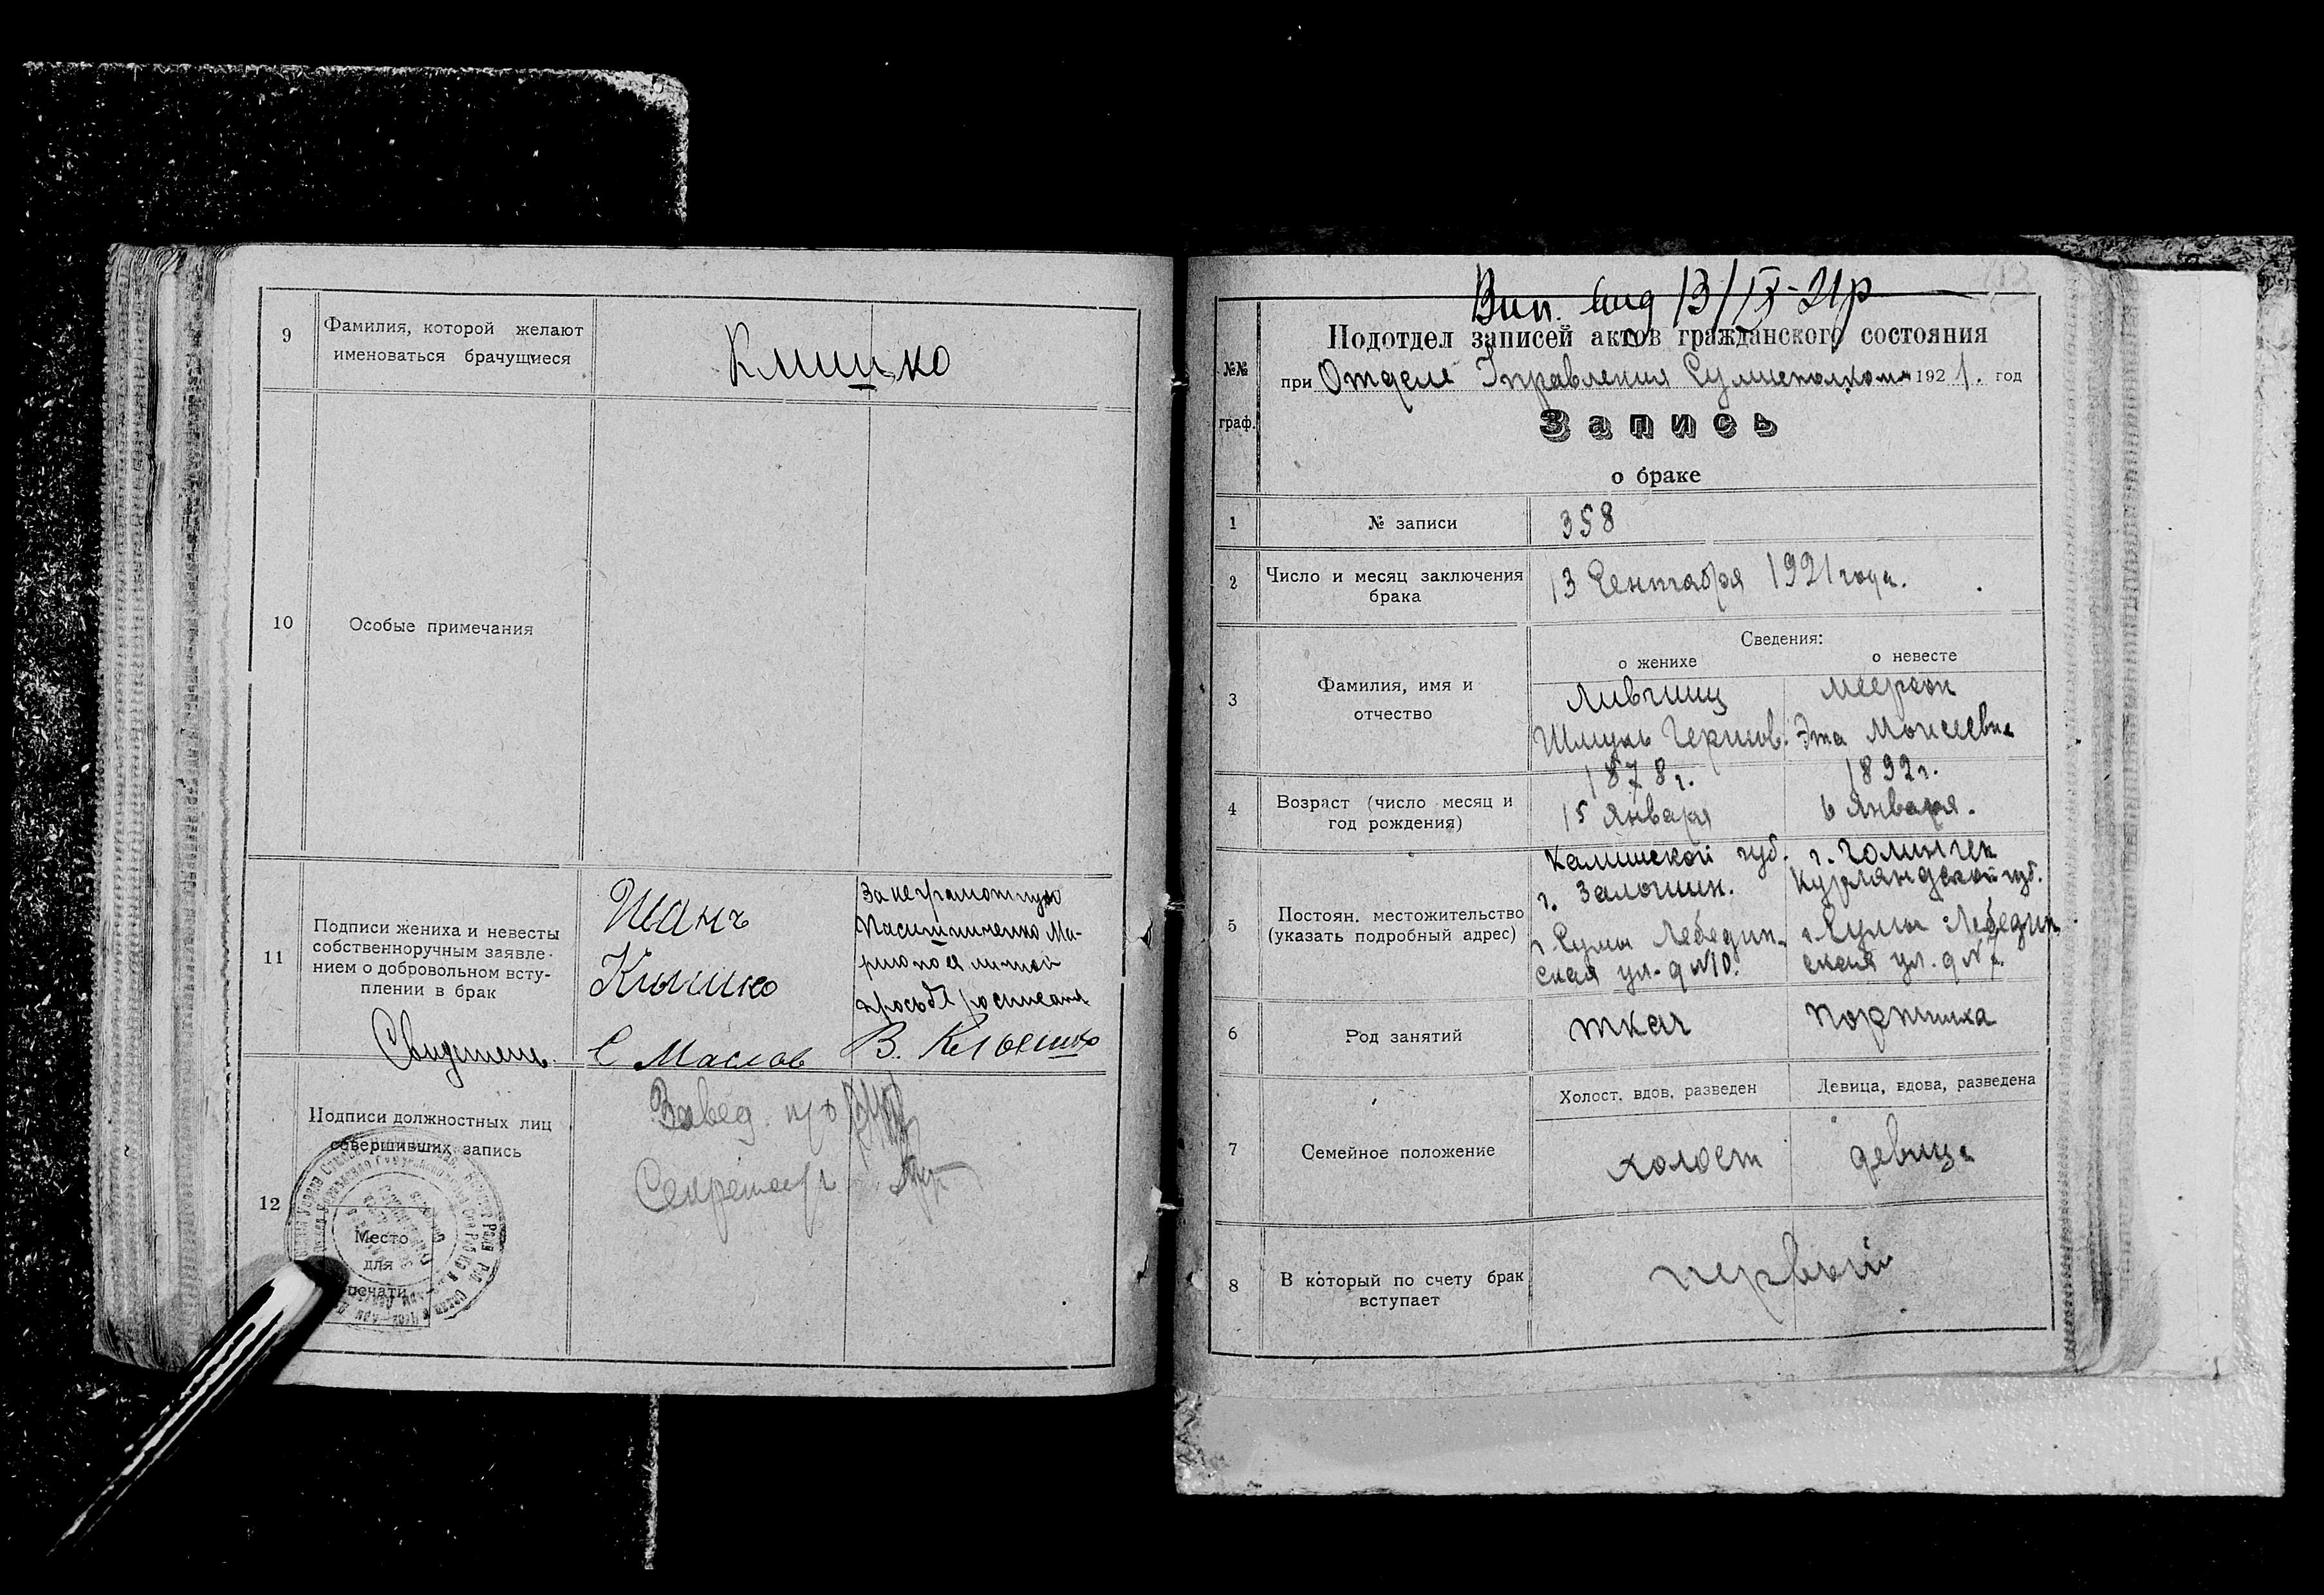 9
Фамилия, которой желают
именоваться брачущиеся
Клишко
10
Особые примечания
11
Подписи жениха и невесты
собственноручным заявле-
нием о добровольном всту-
плении в брак
Иванъ
Клишко
За неграмотную
Ма-
рию по ея личной
просьбе
Свидетели
С Маслов
В.
12
Подписи должностных лиц
совершивших запись
Место
для
печати
Завед. п/о
Секретарь
Вип. вид 13/IX-21р
№№
граф.
Подотдел записей актов гражданского состояния
при Отделе Управления Сумисполкома 1921. год
Запись
о браке
1
№ записи
358
2
Число и месяц заключения
брака
13 Сентября 1921 года.
Сведения:
о женихе
о невесте
3
Фамилия, имя и
отчество
Лившиц
Шмуль Гершов.
Меерсон
Эта Моисеевна
4
Возраст (число месяц и
год рождения)
1878 г.
15 Января
1892 г.
6 Января.
5
Постоян. местожительство
(указать подробный адрес)
Калишской губ.
г. Залошин.
г. Сумы Лебедин-
ская ул. д №10.
г.
Курляндской губ.
г. Сумы Лебедин
ская ул. д №7.
6
Род занятий
ткач
портниха
7
Семейное положение
Холост, вдов, разведен
Девица, вдова, разведена
холост
девица
8
В который по счету брак
вступает
первый